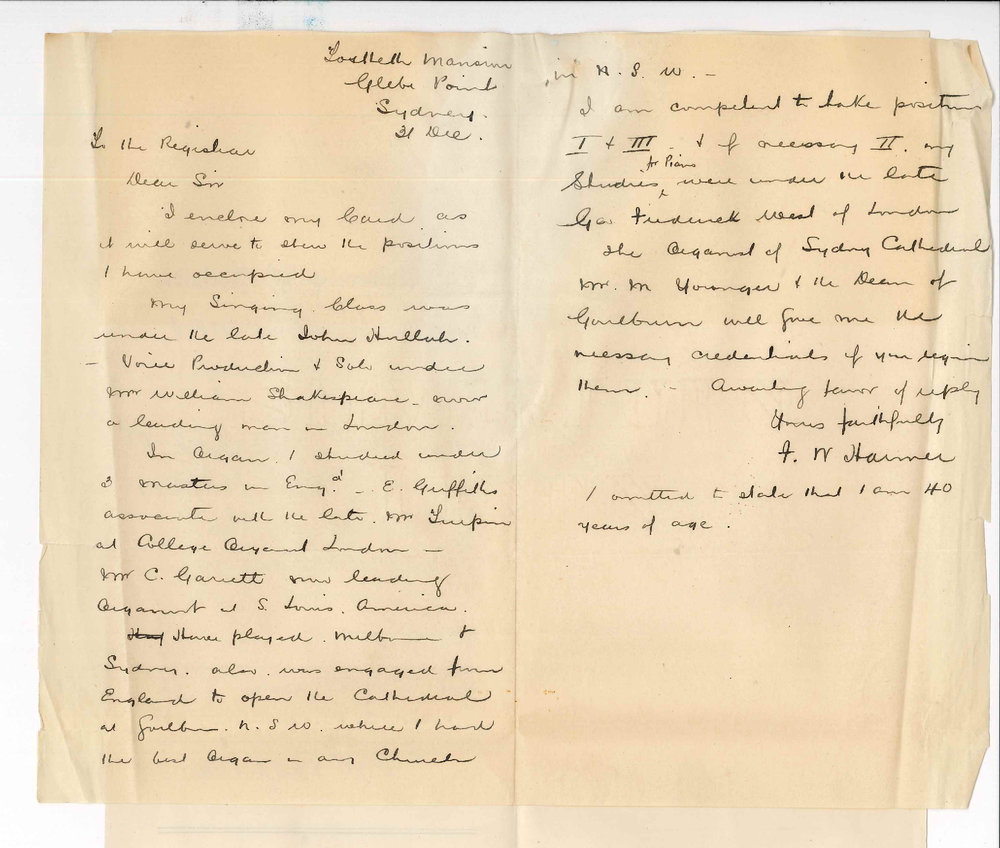 Toxteth Mansion
Glebe Point
Sydney.
31 Dec.
To the Registrar
Dear Sir
I enclose my Card as
it will serve to shew the positions
I have occupied
My Singing Class was
under the late John Hullah.
– Voice Production & Solo under
Mr William Shakespeare – now
a leading man in London.
In Organ. I studied under
3 masters in Engd – E. Griffiths
associate with the late Mr Turpin
at College Organist London –
Mr C. Garrett now leading
Organist at S. Louis. America.
Have played. Melbourne &
Sydney. also was engaged from
England to open the Cathedral
at Goulburn. N. S W. where I had
the best Organ in any Church
in N. S. W. –
I am competent to take positions
I & III. & if necessary II. my
Studies for Piano were under the late
Geo Frederick West of London
The Organist of Sydney Cathedral
Mr. M Younger & the Dean of
Goulburn will give me the
necessary credentials if you require
them. – Awaiting favor of reply
Yours faithfully
F. W Harmer
I omitted to state that I am 40
years of age.